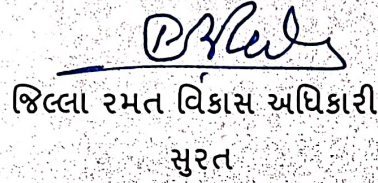 જિલ્લા રમત વિકાસ અધિકારી
સુરત